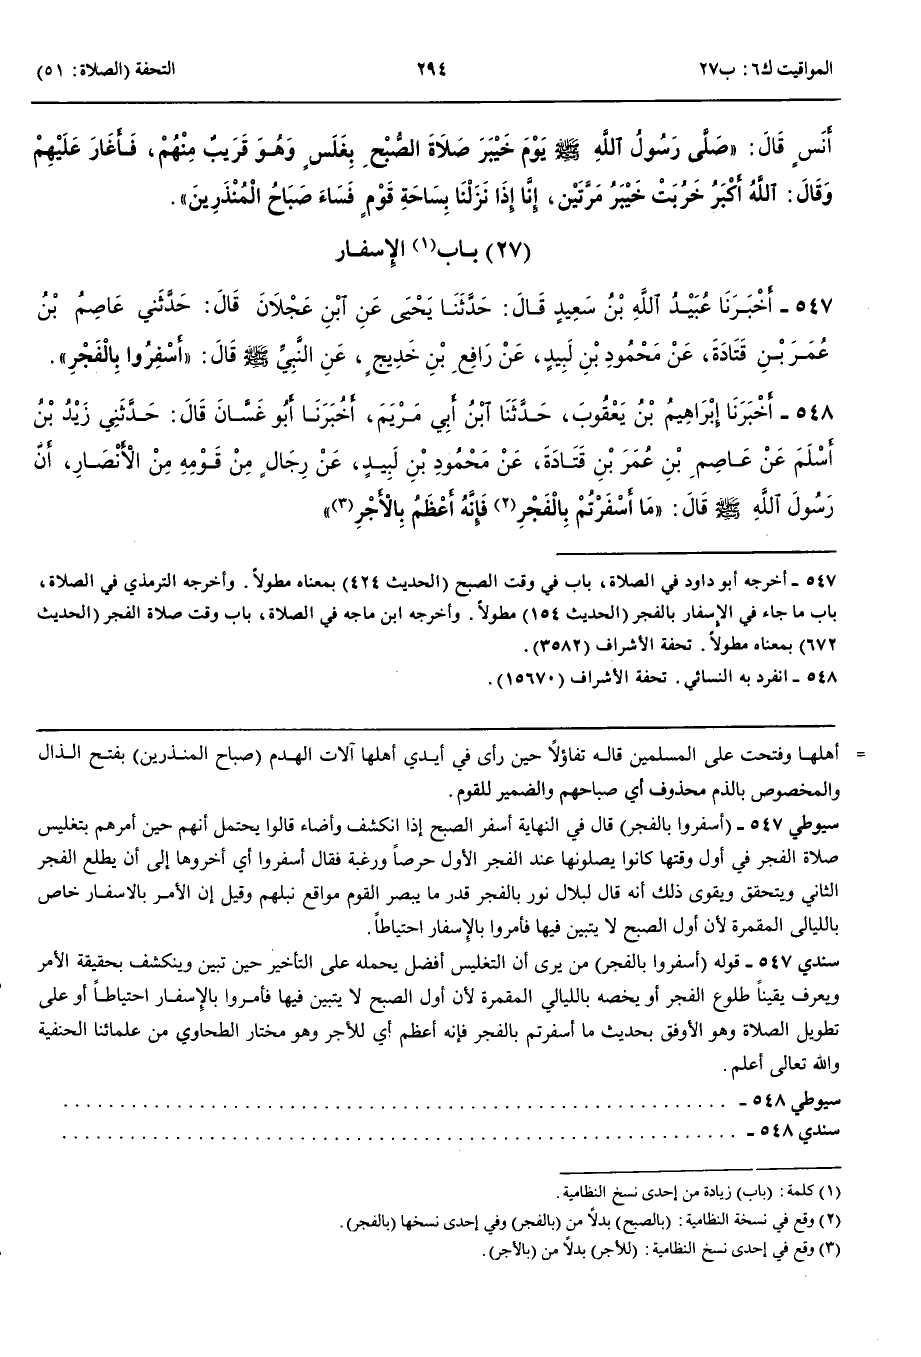 المواقيت ك٦: ب٢٧ ٢٩٤ التحفة (الصلاة: ٥١)
أَنَسٍ قَالَ: «صَلَّى رَسُولُ ٱللَّهِ ﷺ يَوْمَ خَيْبَرَ صَلَاةَ الصُّبْحِ بِغَلَسٍ وَهُوَ قَرِيبٌ مِنْهُمْ، فَأَغَارَ عَلَيْهِمْ
وَقَالَ: ٱللَّهُ أَكْبَرُ خَرُبَتْ خَيْبَرُ مَرَّتَيْنِ، إِنَّا إِذَا نَزَلْنَا بِسَاحَةِ قَوْمٍ فَسَاءَ صَبَاحُ الْمُنْذَرِينَ».
(٢٧) باب(١) الإسفار
٥٤٧ - أَخْبَرَنَا عُبَيْدُ ٱللَّهِ بْنُ سَعِيدٍ قَالَ: حَدَّثَنَا يَحْيَى عَنِ ٱبْنِ عَجْلَانَ قَالَ: حَدَّثَنِي عَاصِمُ بْنُ
عُمَرَ بْنِ قَتَادَةَ، عَنْ مَحْمُودِ بْنِ لَبِيدٍ، عَنْ رَافِعِ بْنِ خَدِيجٍ، عَنِ النَّبِيِّ ﷺ قَالَ: «أَسْفِرُوا بِالْفَجْرِ».
٥٤٨ - أَخْبَرَنَا إِبْرَاهِيمُ بْنُ يَعْقُوبَ، حَدَّثَنَا ٱبْنُ أَبِي مَرْيَمَ، أَخْبَرَنَا أَبُو غَسَّانَ قَالَ: حَدَّثَنِي زَيْدُ بْنُ
أَسْلَمَ عَنْ عَاصِمِ بْنِ عُمَرَ بْنِ قَتَادَةَ، عَنْ مَحْمُودِ بْنِ لَبِيدٍ، عَنْ رِجَالٍ مِنْ قَوْمِهِ مِنَ الْأَنْصَارِ، أَنَّ
رَسُولَ ٱللَّهِ ﷺ قَالَ: «مَا أَسْفَرْتُمْ بِالْفَجْرِ(٢) فَإِنَّهُ أَعْظَمُ بِالْأَجْرِ(٣)»
٥٤٧ - أخرجه أبو داود في الصلاة، باب في وقت الصبح (الحديث ٤٢٤) بمعناه مطولاً. وأخرجه الترمذي في الصلاة،
باب ما جاء في الإسفار بالفجر (الحديث ١٥٤) مطولاً. وأخرجه ابن ماجه في الصلاة، باب وقت صلاة الفجر (الحديث
٦٧٢) بمعناه مطولاً. تحفة الأشراف (٣٥٨٢).
٥٤٨ - انفرد به النسائي. تحفة الأشراف (١٥٦٧٠).
= أهلها وفتحت على المسلمين قاله تفاؤلاً حين رأى في أيدي أهلها آلات الهدم (صباح المنذرين) بفتح الذال
والمخصوص بالذم محذوف أي صباحهم والضمير للقوم.
سيوطي ٥٤٧ - (أسفروا بالفجر) قال في النهاية أسفر الصبح إذا انكشف وأضاء قالوا يحتمل أنهم حين أمرهم بتغليس
صلاة الفجر في أول وقتها كانوا يصلونها عند الفجر الأول حرصاً ورغبة فقال أسفروا أي أخروها إلى أن يطلع الفجر
الثاني ويتحقق ويقوى ذلك أنه قال لبلال نور بالفجر قدر ما يبصر القوم مواقع نبلهم وقيل إن الأمر بالاسفار خاص
بالليالى المقمرة لأن أول الصبح لا يتبين فيها فأمروا بالإسفار احتياطاً.
سندي ٥٤٧ - قوله (أسفروا بالفجر) من يرى أن التغليس أفضل يحمله على التأخير حين تبين وينكشف بحقيقة الأمر
ويعرف يقيناً طلوع الفجر أو يخصه بالليالي المقمرة لأن أول الصبح لا يتبين فيها فأمروا بالإسفار احتياطاً أو على
تطويل الصلاة وهو الأوفق بحديث ما أسفرتم بالفجر فإنه أعظم أي للأجر وهو مختار الطحاوي من علمائنا الحنفية
والله تعالى أعلم.
سيوطي ٥٤٨ - . . . . . . . . . . . . . . . . . . . . . . . . . . . . . .
سندي ٥٤٨ - . . . . . . . . . . . . . . . . . . . . . . . . . . . . . .
(١) كلمة: (باب) زيادة من إحدى نسخ النظامية.
(٢) وقع في نسخة النظامية: (بالصبح) بدلاً من (بالفجر) وفي إحدى نسخها (بالفجر).
(٣) وقع في إحدى نسخ النظامية: (للأجر) بدلاً من (بالأجر).